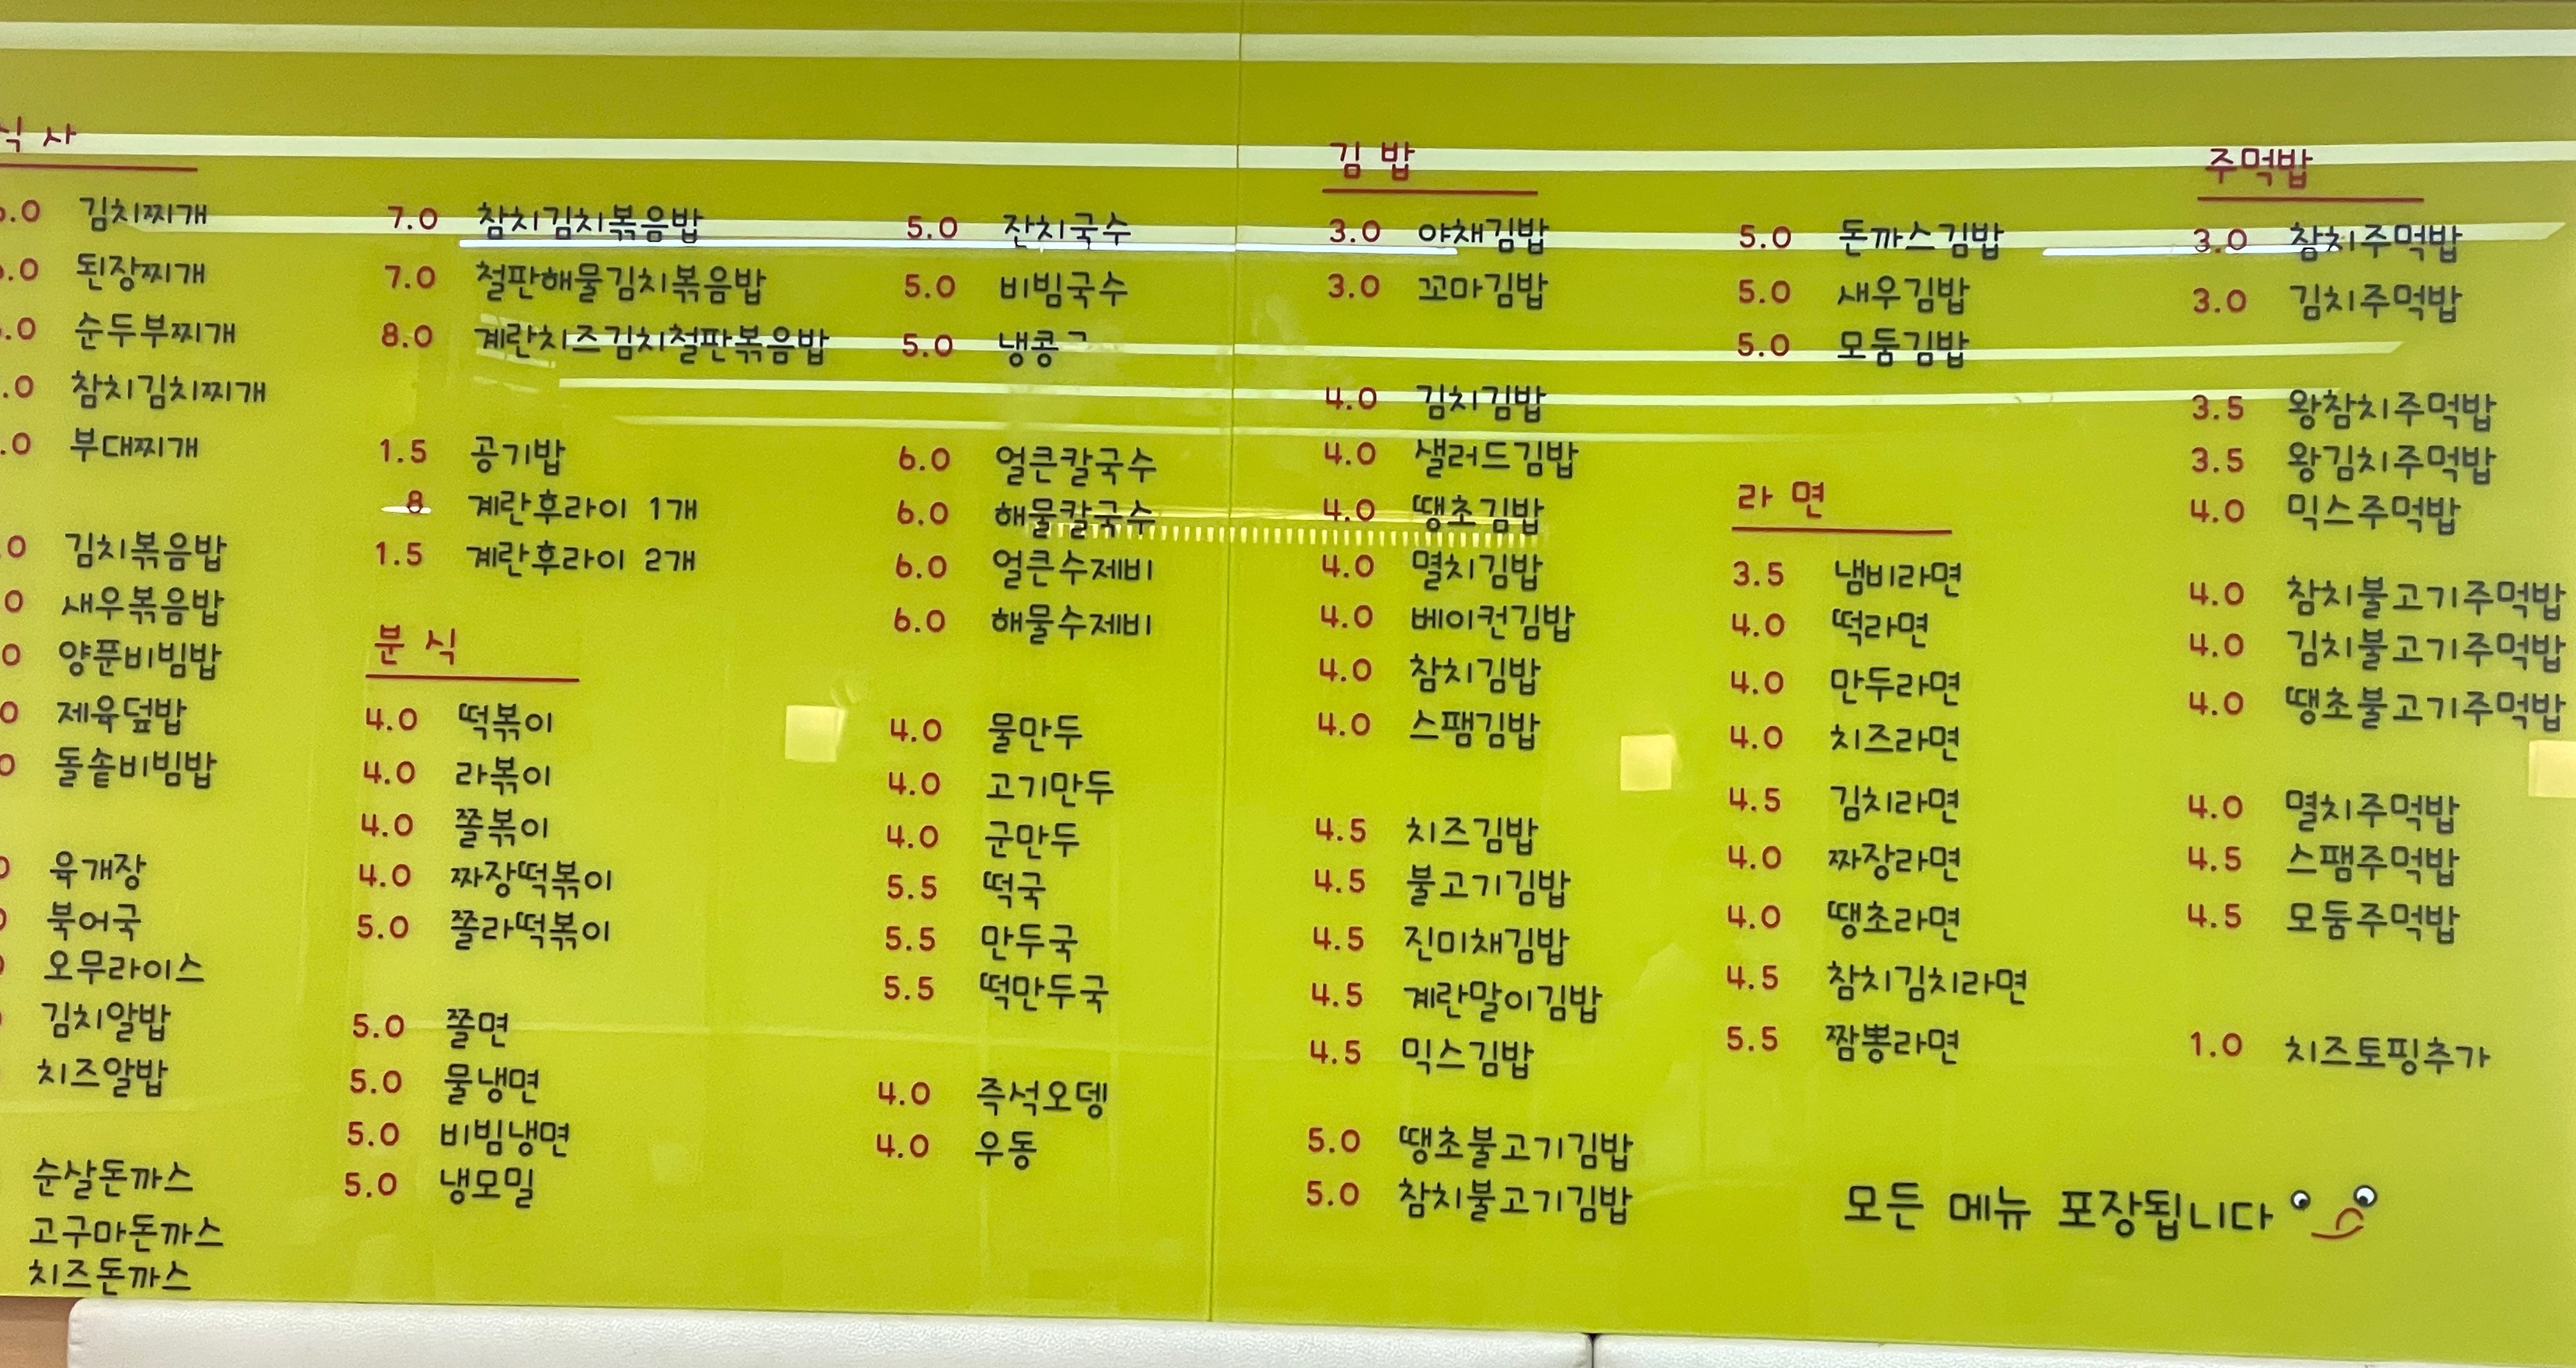 식사
김치찌개
된장찌개
순두부찌개
참치김치찌개
부대찌개
김치볶음밥
새우볶음밥
양푼비빔밥
제육덮밥
돌솥비빔밥
육개장
북어국
오무라이스
김치알밥
치즈알밥
순살돈까스
고구마돈까스
치즈돈까스
7.0 참치김치볶음밥
7.0 철판해물김치볶음밥
8.0 계란치즈김치철판볶음밥
1.5 공기밥
8 계란후라이 1개
1.5 계란후라이 2개
분식
4.0 떡볶이
4.0 라볶이
4.0 쫄볶이
4.0 짜장떡볶이
5.0 쫄라떡볶이
5.0 쫄면
5.0 물냉면
5.0 비빔냉면
5.0 냉모밀
5.0 잔치국수
5.0 비빔국수
5.0 냉콩
6.0 얼큰칼국수
6.0 해물칼국수
6.0 얼큰수제비
6.0 해물수제비
4.0 물만두
4.0 고기만두
4.0 군만두
5.5 떡국
5.5 만두국
5.5 떡만두국
4.0 즉석오뎅
4.0 우동
김밥
3.0 야채김밥
3.0 꼬마김밥
4.0 김치김밥
4.0 샐러드김밥
4.0 땡초김밥
4.0 멸치김밥
4.0 베이컨김밥
4.0 참치김밥
4.0 스팸김밥
4.5 치즈김밥
4.5 불고기김밥
4.5 진미채김밥
4.5 계란말이김밥
4.5 믹스김밥
5.0 땡초불고기김밥
5.0 참치불고기김밥
5.0 돈까스김밥
5.0 새우김밥
5.0 모둠김밥
라면
3.5 냄비라면
4.0 떡라면
4.0 만두라면
4.0 치즈라면
4.5 김치라면
4.0 짜장라면
4.0 땡초라면
4.5 참치김치라면
5.5 짬뽕라면
주먹밥
3.0 참치주먹밥
3.0 김치주먹밥
3.5 왕참치주먹밥
3.5 왕김치주먹밥
4.0 믹스주먹밥
4.0 참치불고기주먹밥
4.0 김치불고기주먹밥
4.0 땡초불고기주먹밥
4.0 멸치주먹밥
4.5 스팸주먹밥
4.5 모둠주먹밥
1.0 치즈토핑추가
모든 메뉴 포장됩니다